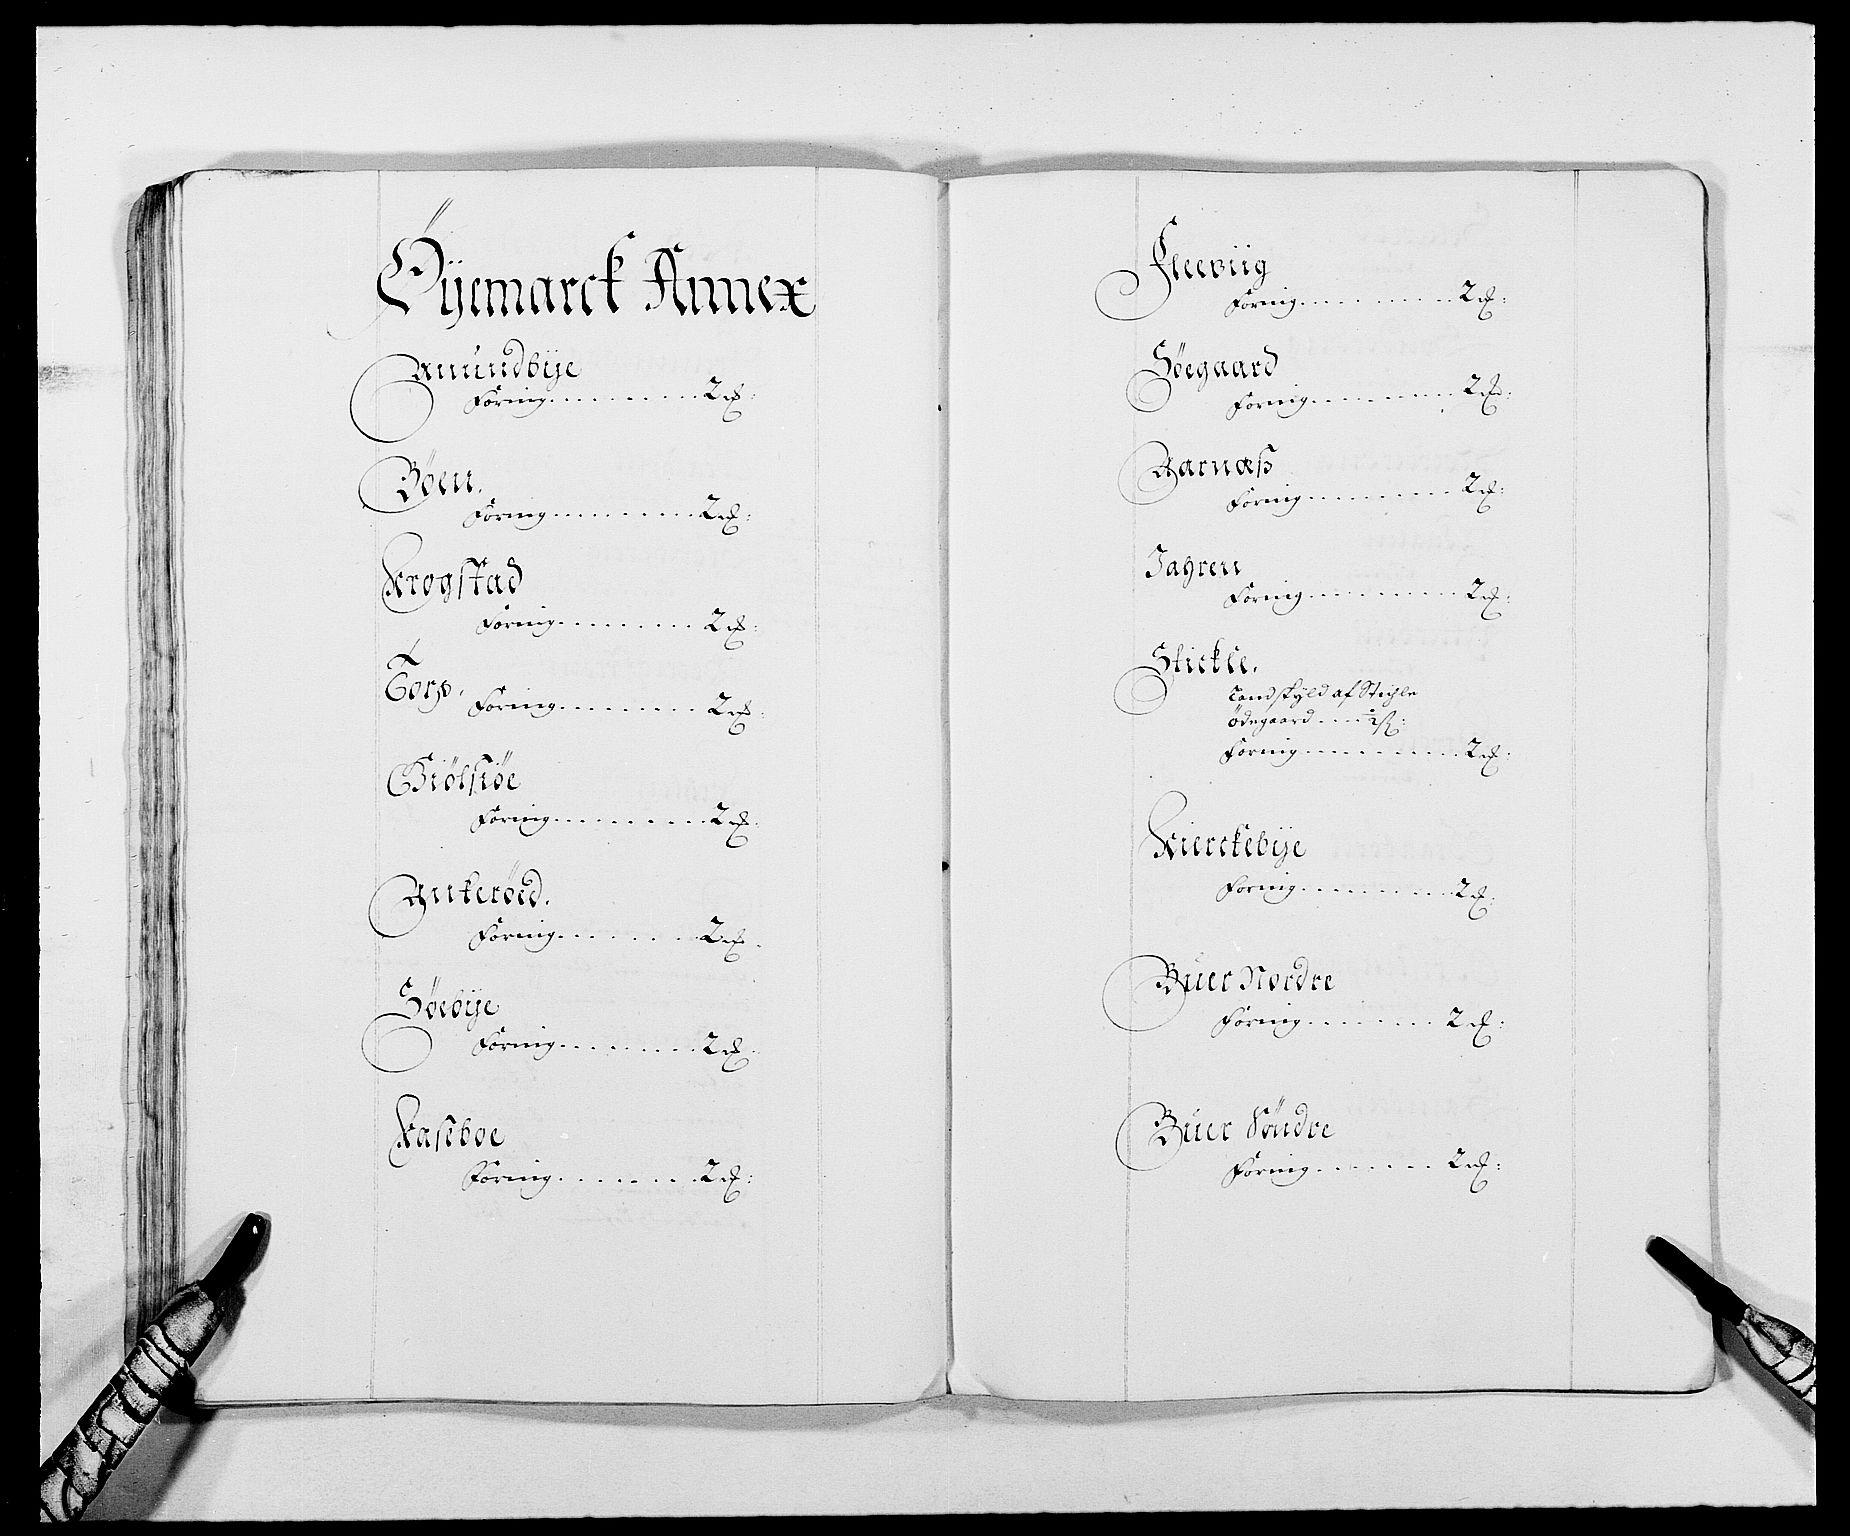 Øyemarck Annex
Amundbÿe
Foring . . . . . . . . . 2 ₰:
Böen.
Foring . . . . . . . . . 2 ₰:
Krogstad
Foring . . . . . . . . . 2 ₰:
Torp. Foring . . . . . . . . . 2 ₰:
Giölsiöe
Foring . . . . . . . . . 2 ₰:
Ankeröed.
Foring . . . . . . . . . 2 ₰.
Söebÿe
Foring . . . . . . . . . 2 ₰:
Kaseboe
Foring . . . . . . . . . 2 ₰:
Sleeviig
Foring . . . . . . . . . 2 ₰:
Söegaard
Foring . . . . . . . . . 2 ₰:
Aarnæß
Foring . . . . . . . . . 2 ₰:
Jahren
Foring . . . . . . . . . 2 ₰:
Stickle.
Landskyld af Stichle
Ödegaard . . . .
Foring . . . . . . . . . 2 ₰:
Kierckebÿe
Foring . . . . . . . . . 2 ₰:
Buer Nordre
Foring . . . . . . . . 2 ₰:
Buer Söndre
Foring . . . . . . . . 2 ₰: